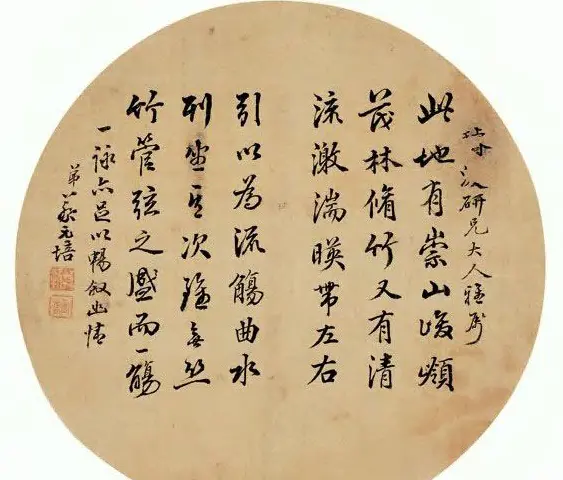 研兄大人雅属
此地有崇山峻領
茂林脩竹又有清
流激湍暎帶左右
引以為流觴曲水
列坐其次雖無絲
竹管弦之盛而一觴
一詠亦足以暢叙幽情
弟蔡元培